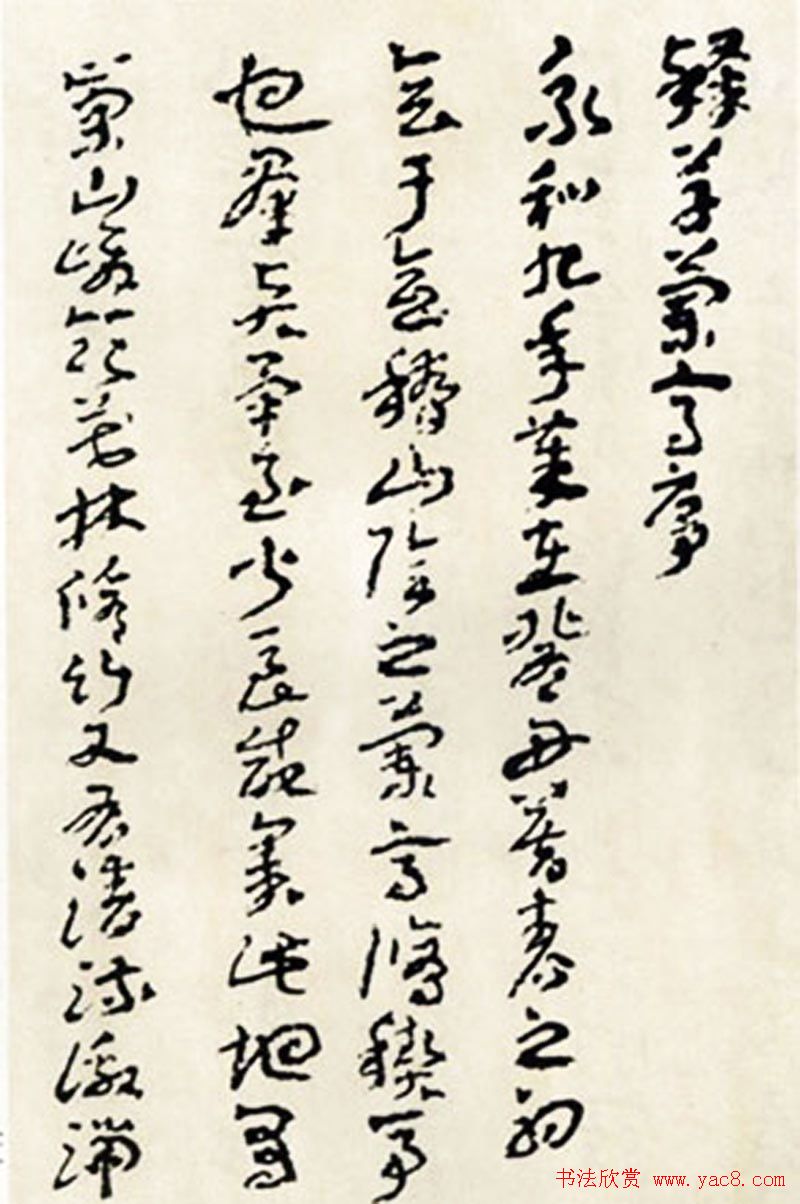 草蘭亭序
永和九年歲在癸丑暮春之初
會于會稽山陰之蘭亭脩禊事
也羣賢畢至少長咸集此地有
崇山峻領茂林脩竹又有清流激湍
书法欣赏 www.yac8.com